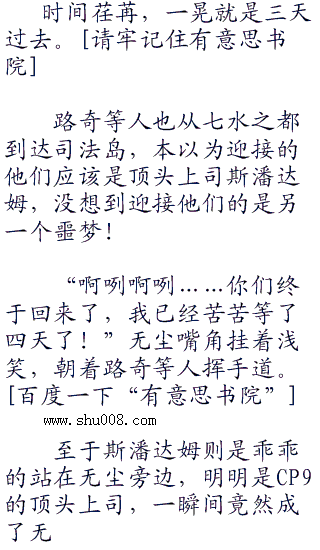 时间荏苒，一晃就是三天
过去。[请牢记住有意思书
院]
路奇等人也从七水之都
到达司法岛，本以为迎接的
他们应该是顶头上司斯潘达
姆，没想到迎接他们的是另
一个噩梦！
“啊咧啊咧……你们终
于回来了，我已经苦苦等了
四天了！”无尘嘴角挂着浅
笑，朝着路奇等人挥手道。
[百度一下“有意思书院”]
www.shu008.com
至于斯潘达姆则是乖乖
的站在无尘旁边，明明是CP9
的顶头上司，一瞬间竟然成
了无